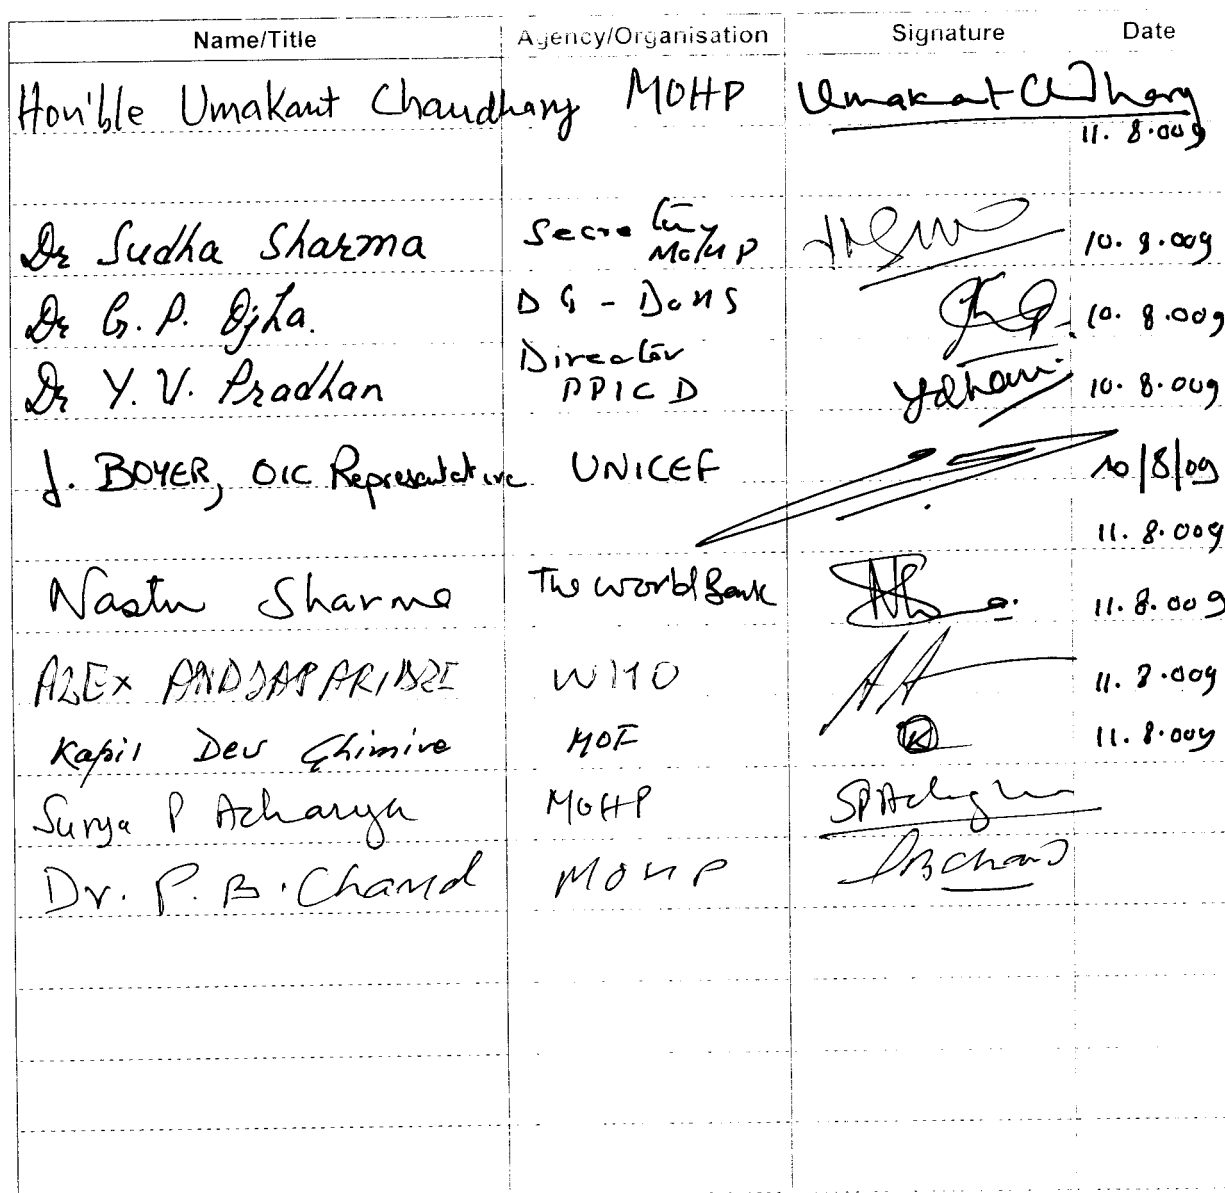 Name/Title Agency/Organisation Signature Date
Hon'ble Umakant Chaudhary MOHP Umakant Chaudhary
11. 8.009
Dr Sudha Sharma Secretary MoHP 10. 8.009
Dr G. P. Ojha. DG - DoHS 10. 8.009
Dr Y. V. Pradhan Director PPICD 10. 8.009
J. BOYER, OIC Representative UNICEF 10/8/09
11. 8.009
Nastu Sharma The World Bank 11.8.009
ALEX ANDJAPARIDZE WHO 11. 8.009
Kapil Dev Ghimire MOF 11. 8.009
Surya P Acharya MOHP SPAcharya
Dr. P. B. Chand MOHP PBChand